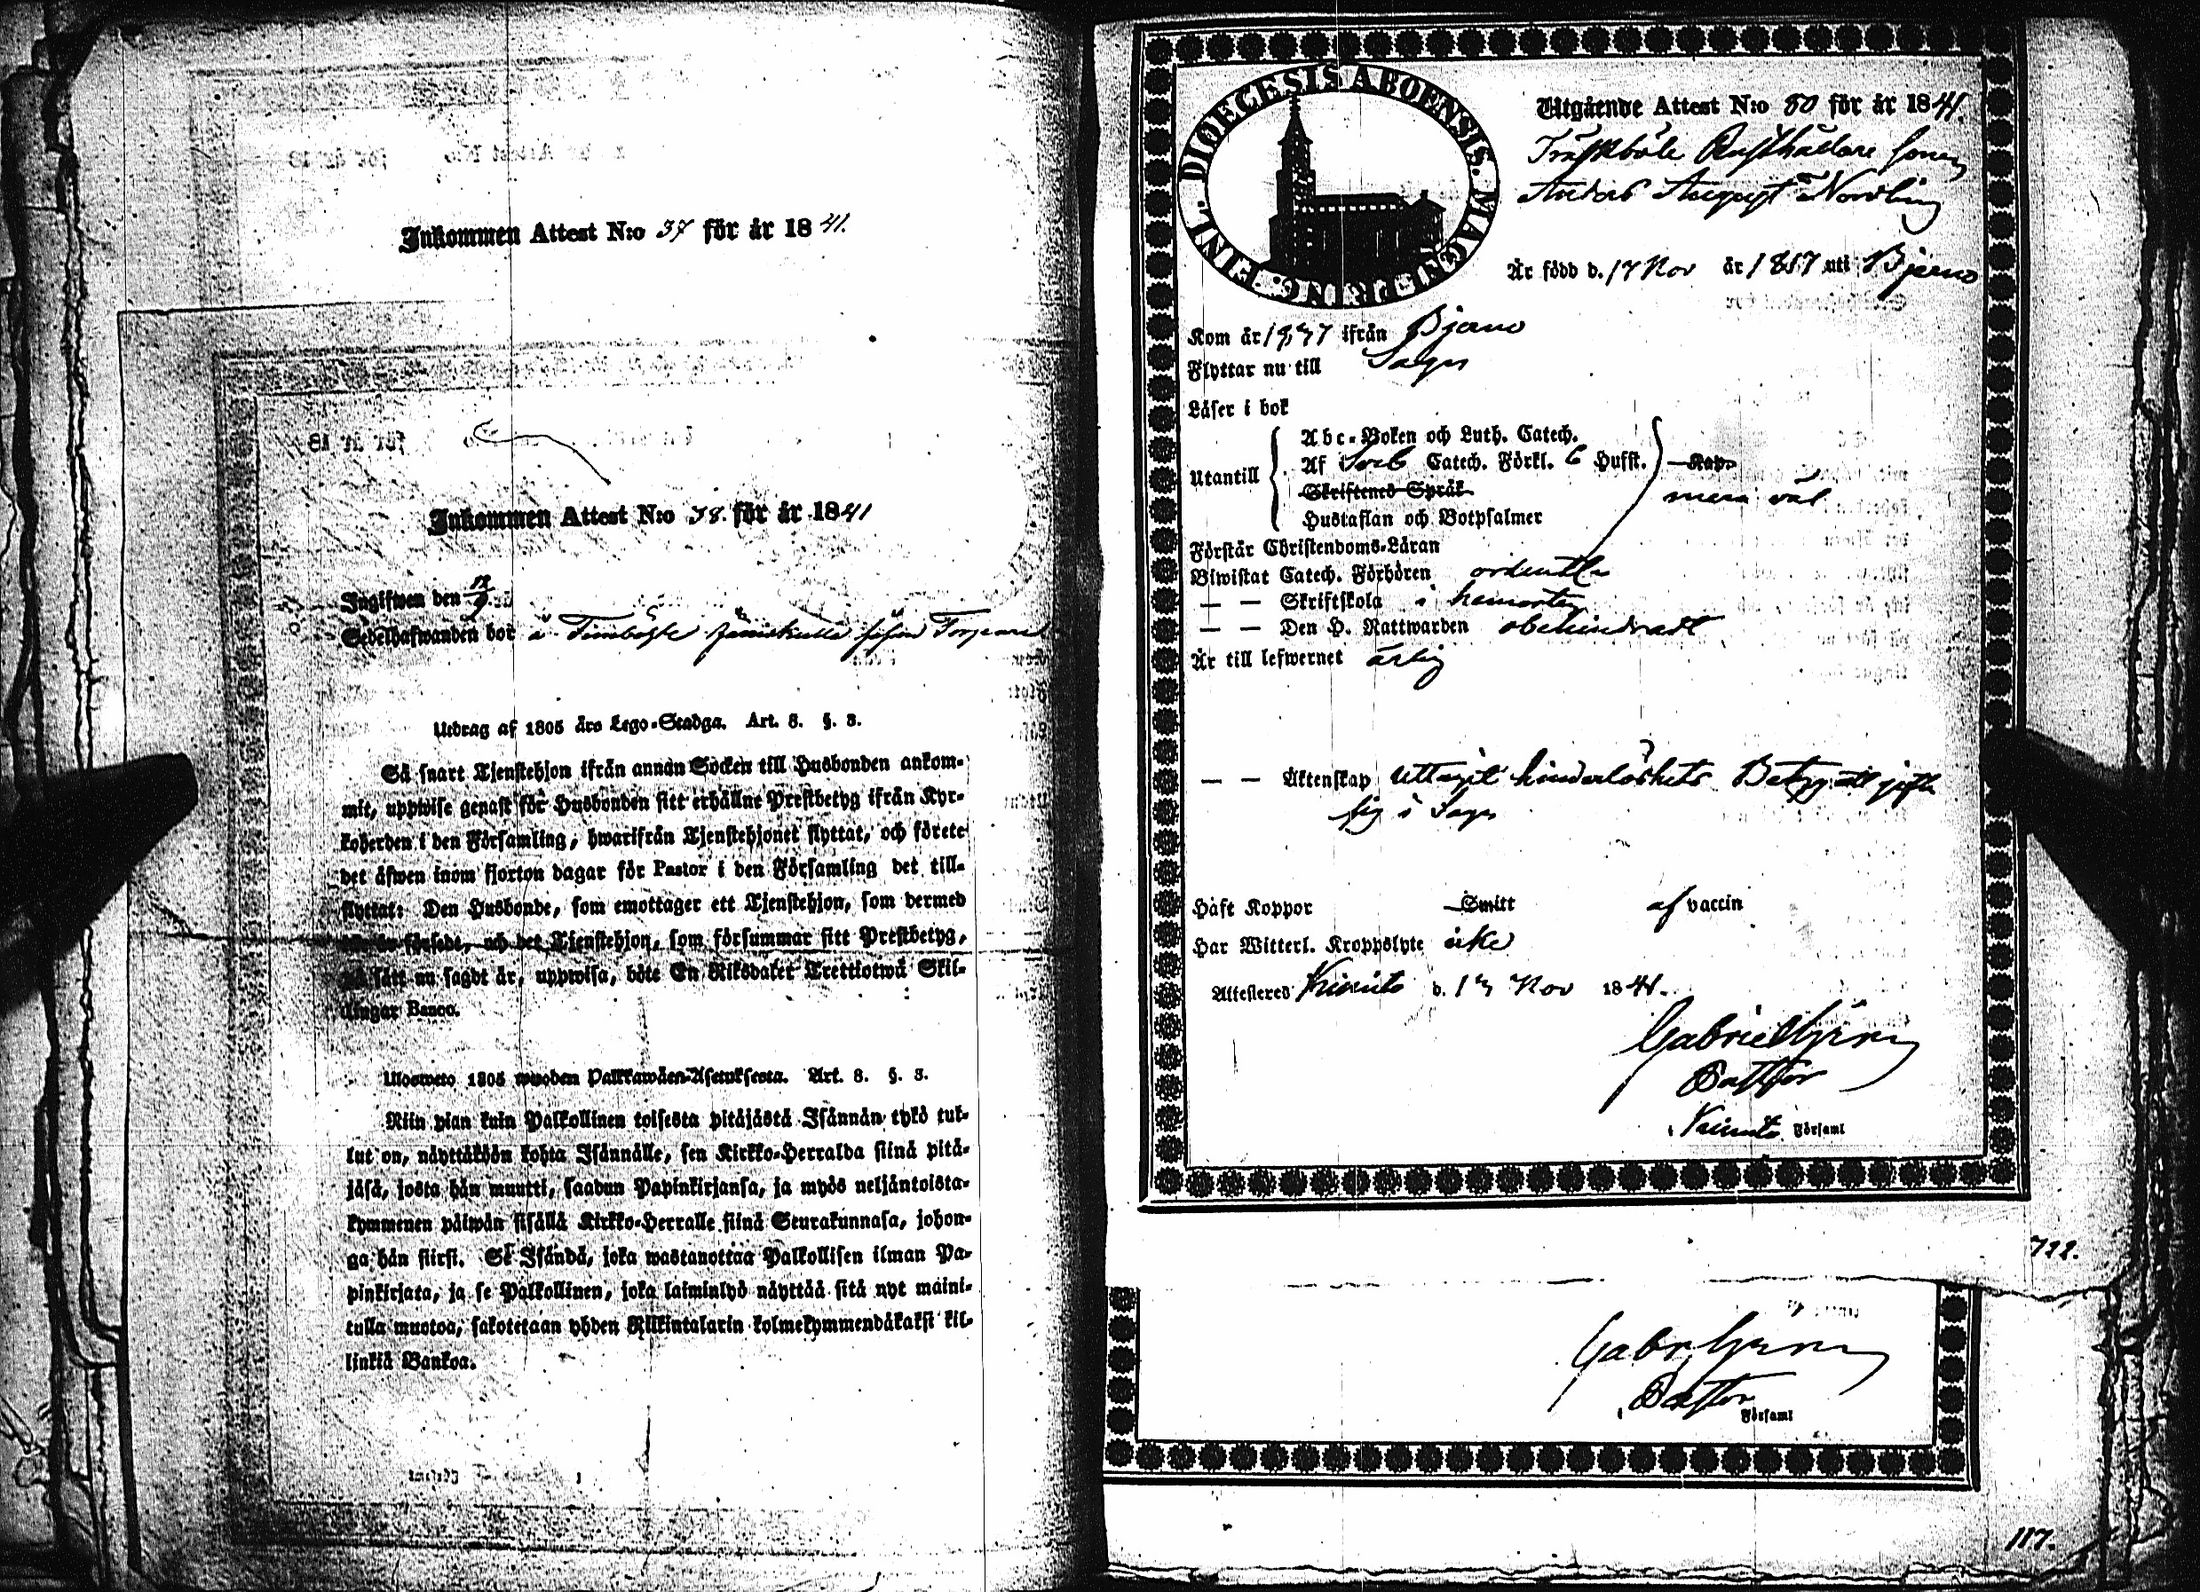 Inkommen Attest N:o 37 för år 1841.
Inkommen Attest N:o 38. för år 1841
Ingifwen den
Sedelhafwanden bor å
Utdrag af 1805 års Lego-Stadga. Art. 8. §. 3.
Så snart Tjenstehjon ifrån annan Socken till Husbonden ankom-
mit, uppwise genast för Husbonden sitt erhållne Prestbetyg ifrån Kyr-
koherden i den Församling, hwarifrån Tjenstehjonet flyttat, och förete
det äfwen inom fjorton dagar för Pastor i den Församling det till-
flyttat: Den Husbonde, som emottager ett Tjenstehjon, som dermed
försedt, och det Tjenstehjon, som försummar sitt Prestbetyg,
på sätt nu sagdt är, uppwisa, böte En Riksdaler Trettiotwå Skil-
lingar Banco.
Ulosweto 1805 wuoden Palkkawäen-Asetuksesta. Art. 8. §. 3.
Niin pian kuin Palkollinen toisesta pitäjästä Isännän tykö tul-
lut on, näyttäköön kohta Isännälle, sen Kirkko-Herralda siinä pitä-
jäsä, josta hän muutti, saadun Papinkirjansa, ja myös neljäntoista-
kymmenen päiwän sisällä Kirkko-Herralle siinä Seurakunnasa, johon-
ga hän siirsi. Se Isändä, joka wastanottaa Palkollisen ilman Pa-
pinkirjata, ja se Palkollinen, joka laiminlyö näyttää sitä nyt maini-
tulla muotoa, sakotetaan yhden Riikintalarin kolmekymmendäkaksi kil-
linkiä Bankoa.
DIOECESIS ABOENSIS. MAGNI PRINC. FINL.
Utgående Attest N:o 80 för år 1841.
Träskböle Rusthållare Sonen
Anders August Nordling
Är född d. 17 Nov år 1817 uti Bjerno
Kom år 1837 ifrån Bjerno
Flyttar nu till Sagu
Läser i bok
Utantill
Abc-Boken och Luth. Catech.
Af Sveb Catech. Förkl. 6 Hufst. Kap.
Skriftenes Språk
mera väl
Hustaflan och Botpsalmer
Förstår Christendoms-Läran
Biwistat Catech. Förhören ordentl.
— — Skriftskola i hemorten
— — Den H. Nattwarden obehindradt
Är till lefwernet ärlig
— — Äktenskap uttagit hinderlöshets Betyg att gifta
sig i Sagu
Haft Koppor Smitt af vaccin
Har Witterl. Kroppslyte icke
Attesteres Kimito d. 13 Nov 1841.
Gabriel Hjern
Pastor
Kimito Församl
722.
Gabr. Hjern
Pastor
Församl
117.